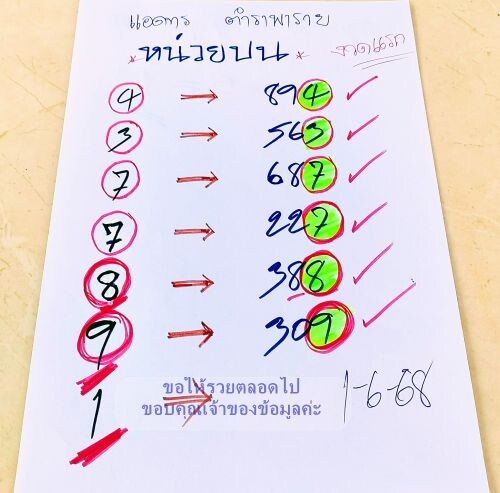 แอดการ ตำราพารวย
* หน่วยบน * งวดแรก
4 → 894 ✓
3 → 563 ✓
7 → 687 ✓
7 → 227 ✓
8 → 388 ✓
9 → 309 ✓
1 → 1-6-68
ขอให้รวยตลอดไป
ขอบคุณเจ้าของข้อมูลค่ะ